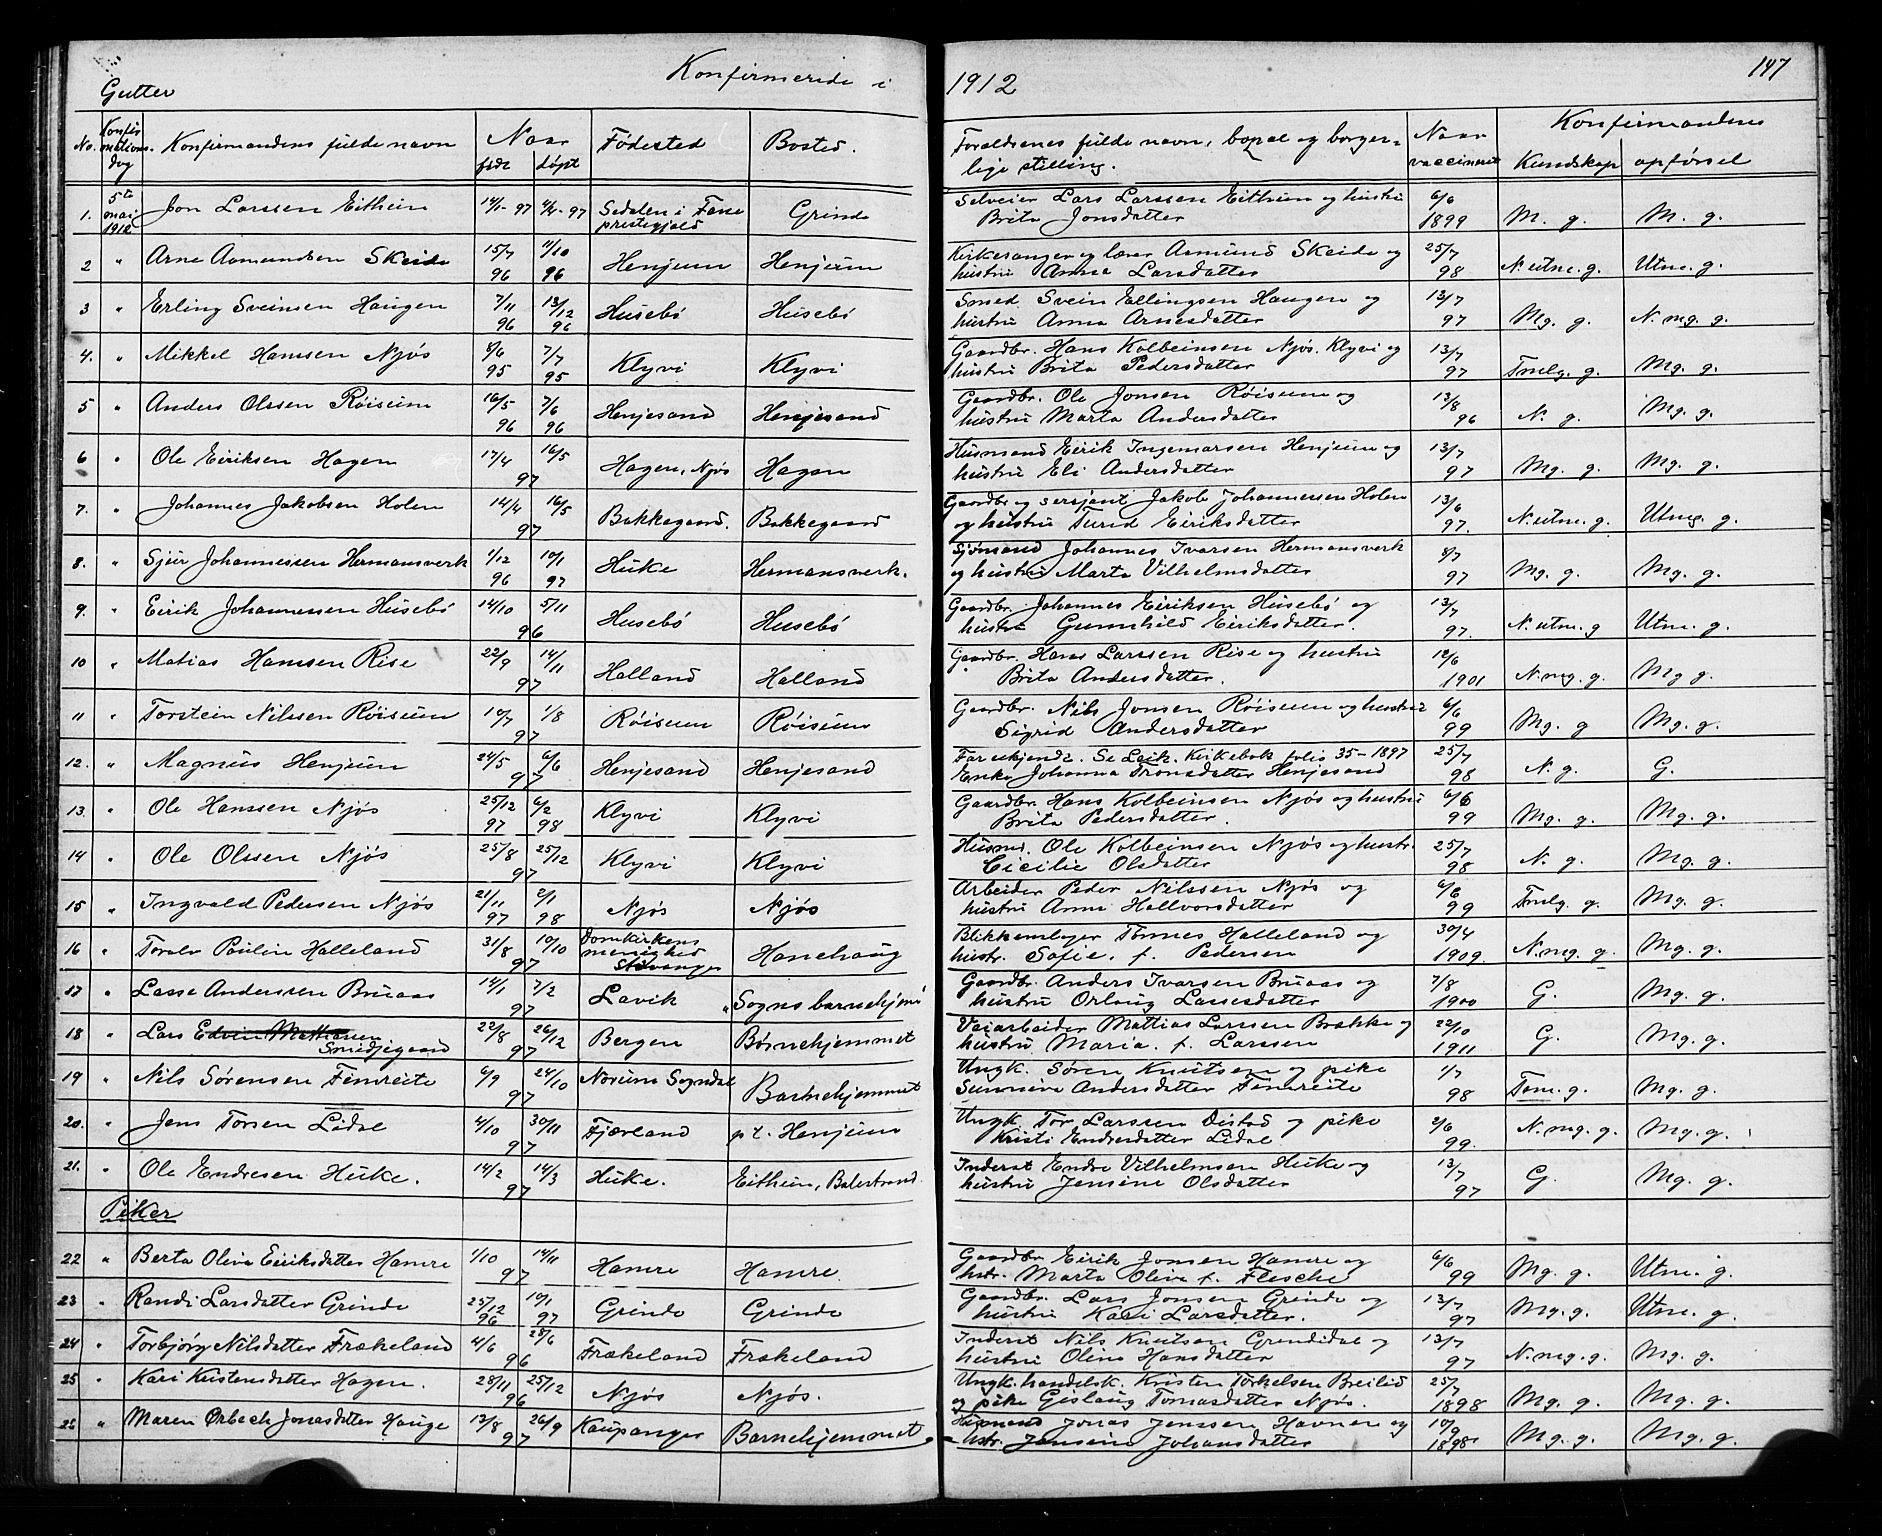 147
Konfirmerede i 1912
Gutter
No. Konfirmations dag Konfirmandens fulde navn Naar født døpt Fødested Bosted. Forældrenes fulde navn, bopæl og borgerlige stilling. Naar vaccineret Konfirmandens Kundskap opførsel
1. 5te mai 1912 Jon Larssen Eithun 14/1-97 4/4-97 Sedalen i Fane prestegjeld Grinde Selveier Lars Larssen Eithun og hustru Brita Jonsdatter 6/6 1899 M. g. M. g.
2 " Arne Aamundsen Skeide 15/7 96 11/10 96 Henjum Henjum Kirkesanger og lærer Aamund Skeide og hustru Anna Larsdatter 25/7 98 N. utm. g. Utm. g.
3 " Erling Sveinsen Haugen 7/11 96 13/12 96 Husebö Husebö Smed Svein Ellingsen Haugen og hustru Anna Arnesdatter 13/7 97 Mg. g. N. mg. g.
4. " Mikkel Hanssen Njøs 8/6 95 7/7 95 Klyvi Klyvi Gaardbr. Hans Kolbeinsen Njøs. Klyvi og hustru Brita Pedersdatter 13/7 97 Tmlg. g. Mg. g.
5 " Anders Olssen Røisum 16/5 96 7/6 96 Henjesand Henjesand Gaardbr. Ole Jonsen Røisum og hustru Marta Andersdatter 13/8 96 N. g. Mg. g.
6 " Ole Eiriksen Hagen 17/4 16/5 97 Hagen, Njøs Hagen Husmand Eirik Ingemarsen Henjum og hustru Eli Andersdatter 13/7 97 Mg. g. Mg. g.
7. " Johannes Jakobsen Holen 14/4 16/5 97 Bakkegaard. Bakkegaard Gaardbr. og sersjant Jakob Johannessen Holen og hustru Turid Eiriksdatter 13/6 97. N. utm. g. Utm. g.
8. " Sjur Johannessen Hermansverk 1/12 96 10/1 97 Huke Hermansverk. Sjømand Johannes Ivarsen Hermansverk og hustru Marta Vilhelmsdatter 8/7 97 Mg. g. Mg. g.
9. " Eirik Johannessen Husebö 14/10 5/11 96 Husebö Husebö Gaardbr. Johannes Eiriksen Husebö og hustru Gunnhild Eiriksdatter. 13/7 97. N. utm. g Utm. g.
10 " Matias Hanssen Rise 22/9 14/11 97 Halland Halland Gaardbr. Hans Larssen Rise og hustru Brita Andersdatter. 12/6 1901 N. mg. g. Mg g.
11 " Torstein Nilssen Røisum 10/7 1/8 97 Røisum Røisum Gaardbr. Nils Jonsen Røisum og hustru Sigrid Andersdatter 6/6 99 Mg. g Mg. g.
12. " Magnus Henjum 24/5 6/6 97 Henjesand Henjesand Far ukjendt. Se Leik. Kirkebok folio 35-1897 Enke Johanna Tronsdatter Henjesand 25/7 98 N. g. G.
13. " Ole Hanssen Njøs 25/12 97 6/2 98 Klyvi Klyvi Gaardbr. Hans Kolbeinsen Njøs og hustru Brita Pedersdatter. 6/6 99 Mg. g. Mg. g.
14 " Ole Olssen Njøs 25/8 25/12 97 Klyvi Klyvi Husmd. Ole Kolbeinsen Njøs og hustr. Cicilie Olsdatter 25/7 98 N. g. Mg. g.
15 " Ingvald Pedersen Njøs 21/11 97 2/1 98 Njøs Njøs Arbeider Peder Nilssen Njøs og hustru Anna Hallvorsdatter 6/6 99 Tmlg. g. Mg. g.
16 " Toralv Paulin Halleland 31/8 10/10 97 Domkirkens menighed Stavanger Hanehaug Blikkenslager Tønnes Halleland og hustr. Sofie. f. Pedersen 30/4 1909. N. mg. g. Mg. g.
17 " Lasse Anderssen Bruaas 14/1 7/2 97 Lavik "Sogns barnehjem" Gaardbr. Anders Ivarsen Bruaas og hustru Orlaug Lassesdatter 7/8 1900 G. Mg. g.
18 " Lars Edvin Mathiasen Smidjegaard 22/8 26/12 97 Bergen Børnehjemmet Veiarbeider Mattias Larssen Brakke og hustru Maria. f. Larssen 22/10 1911 G. Mg. g.
19 " Nils Sørensen Fimreite 6/9 24/10 97 Norum Sogndal Barnehjemmet Ungk. Søren Knutsen og pike Sunneva Andersdatter Fimreite 1/7 98 Tem. g. Mg. g.
20. " Jens Torsen Lidal 4/10 30/11 97 Fjærland p t. Henjum Ungk. Tor Larssen Distad og pike Kristi Endresdatter Lidal 2/6 99. N. mg. g. Mg. g.
21. " Ole Endresen Huke. 14/2 14/3 97 Huke. Eithun, Balestrand Inderst Endre Vilhelmsen Huke og hustru Jensine Olsdatter 13/7 97 G. Mg. g.
Piker
22 " Berta Oliva Eiriksdatter Hamre 1/10 14/11 97 Hamre Hamre. Gaardbr. Eirik Jonsen Hamre og hstr. Marta Oliva f. Flesche 6/6 99 Mg. g. Utm. g.
23 " Randi Larsdatter Grinde 25/12 96 10/1 97 Grinde Grinde Gaardbr. Lars Jonsen Grinde og hustru Kari Larsdatter. 13/7 97 Mg. g. Utm. g.
24 " Torbjørg Nilsdatter Frækeland 4/6 28/6 96 Frækeland Frækeland Inderst Nils Knutsen Grendidal og hustru Olina Hansdatter 13/7 97 N. mg. g. Mg. g.
25 " Kari Kristensdatter Hagen. 28/11 25/12 96 Njøs Njøs. Ungk. handelsk. Kristen Torkelsen Breilid og pike Gislaug Tomasdatter Njøs. 25/7 1898 Mg. g. Mg. g.
26 " Maren Ørbech Jonasdatter Hauge 13/8 26/9 97 Kaupanger Barnehjemmet Husmand Jonas Jenssen Havnen og hstr. Jensine Johansdatter 10/9 1898 Mg. g. Mg. g.